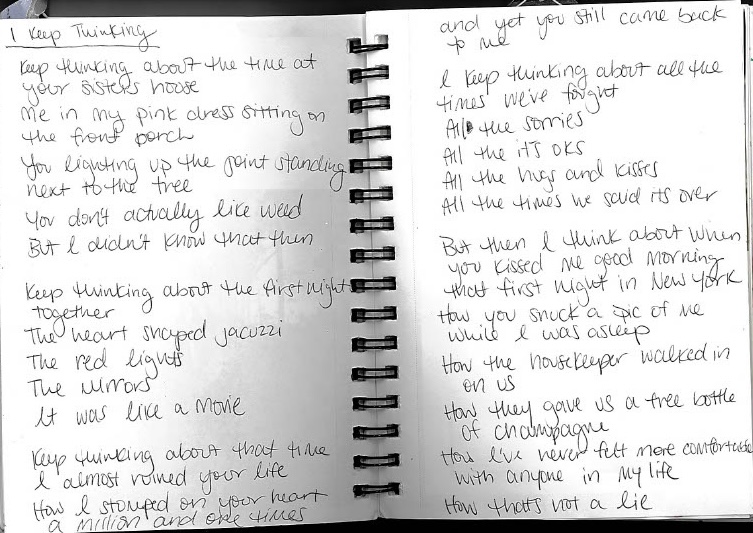 I Keep Thinking
Keep thinking about the time at
your sisters house
Me in my pink dress sitting on
the front porch
You lighting up the joint standing
next to the tree
You don't actually like weed
But I didn't know that then
Keep thinking about the first night
together
The heart shaped jacuzzi
The red lights
The mirrors
It was like a movie
Keep thinking about that time
I almost ruined your life
How I stomped on your heart
a million and one times
and yet you still came back
to me
I keep thinking about all the
times we've fought
All the sorries
All the it's oks
All the hugs and kisses
All the times we said its over
But then I think about when
you kissed me good morning
that first night in New York
How you snuck a pic of me
while I was asleep
How the housekeeper walked in
on us
How they gave us a free bottle
of champagne
How I've never felt more comfortable
with anyone in my life
How that's not a lie